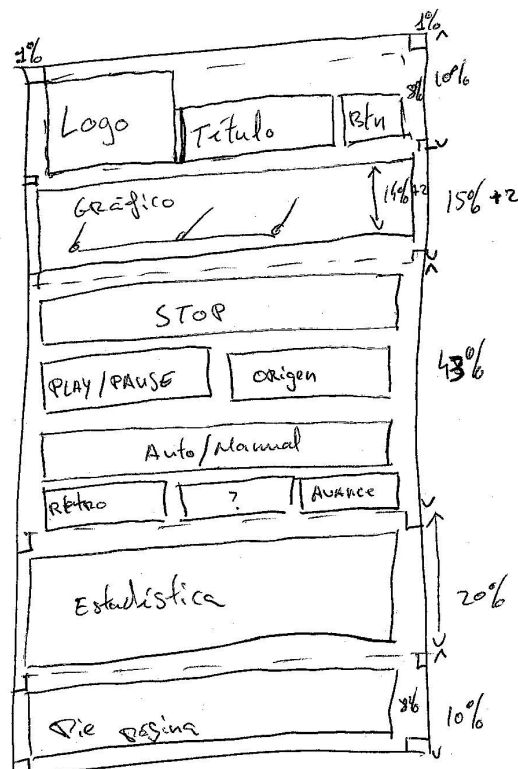 1%
1%
Logo
Título
8%
Btn
10%
Gráfico
14% +2
15% +2
STOP
PLAY/PAUSE
ORigen
43%
Auto/Manual
RETRO
?
AVANCE
Estadística
20%
Pie página
8%
10%